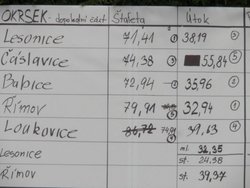 OKRSEK - dopolední část Štafeta Útok
Lesonice 71,41 ① 38,19 ③
Čáslavice 74,38 ③ 55,84 ⑤
Babice 72,94 35,96 ②
Římov 79,91 ⑤ 32,94 ①
Loukovice 74,91 39,63 ④
Lesonice ml. 32,35
st. 24,58
Římov st. 39,37